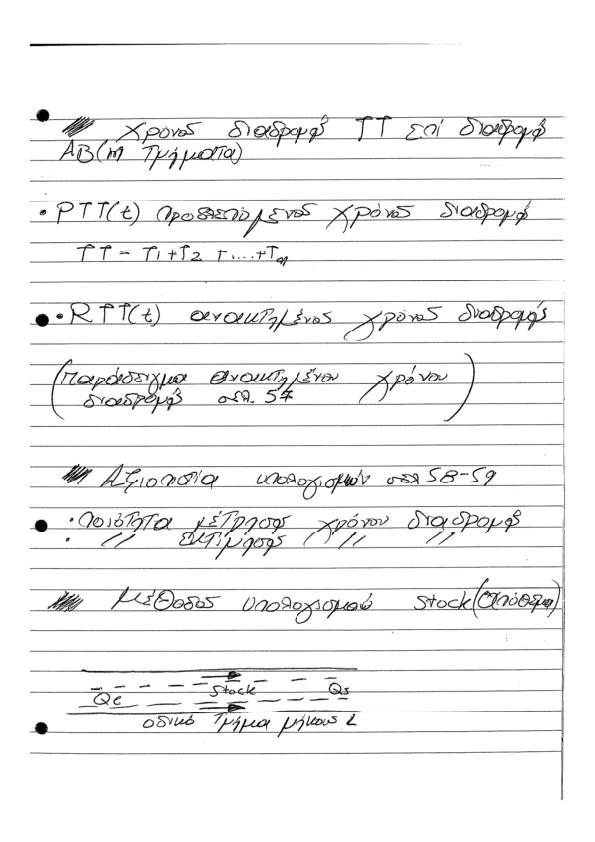 Χρόνος διαδρομής ΤΤ επί διαδρομής
ΑΒ (m τμήματα)
• PTT(t) προβλεπόμενος χρόνος διαδρομής
TT = T1+T2 +....+Tm
• RTT(t) ανακτημένος χρόνος διαδρομής
(Παράδειγμα ανακτημένου χρόνου
διαδρομής σελ. 57)
Αξιοπιστία υπολογισμών σελ 58-59
• ποιότητα μέτρησης χρόνου διαδρομής
• // εκτίμησης ( // //
Μέθοδος υπολογισμού stock (απόθεμα)
Qe Stock Qs
οδικό τμήμα μήκους L